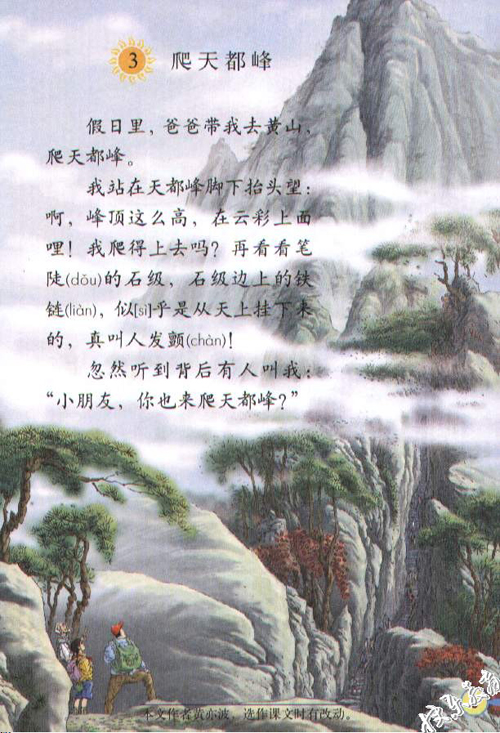 3 爬天都峰
假日里，爸爸带我去黄山，
爬天都峰。
我站在天都峰脚下抬头望：
啊，峰顶这么高，在云彩上面
哩！我爬得上去吗？再看看笔
陡(dǒu)的石级，石级边上的铁
链(liàn)，似[sì]乎是从天上挂下来
的，真叫人发颤(chàn)！
忽然听到背后有人叫我：
“小朋友，你也来爬天都峰？”
本文作者黄亦波，选作课文时有改动。